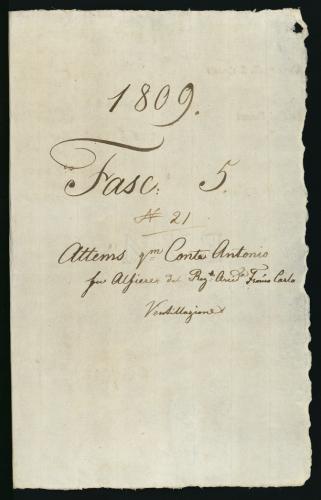 1809.
Fasc: 5.
N 21
Attems qm Conte Antonio
fu Alfiere del Regto Arcid. Franco Carlo
Ventillazione